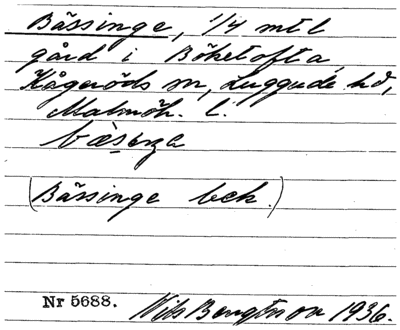 Bässinge, 1/4 mtl
gård i Böketofta,
Kågeröds sn, Luggude hd,
Malmöh. l.
(Bässinge bck.)
Nr 5688. Nils Bengtsson 1936.